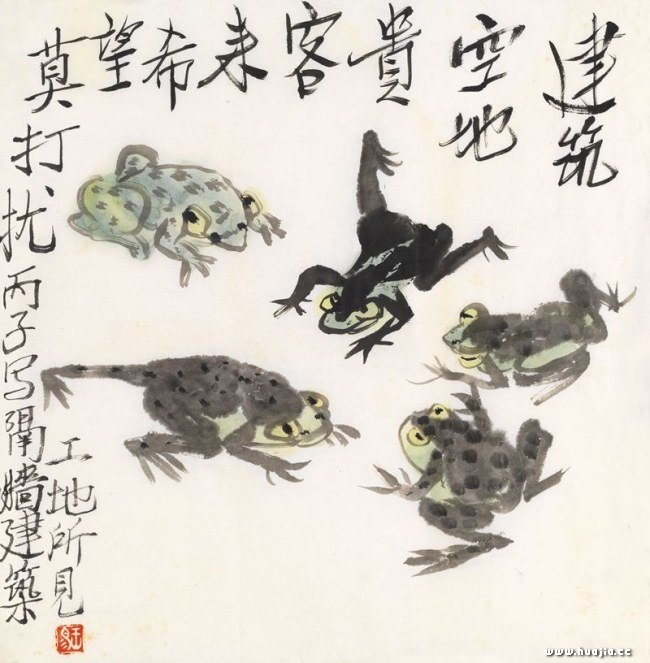 建筑
空地
貴
客
来
希
望
莫打扰丙子写隔墙建築
工地所见
www.huajia.cc